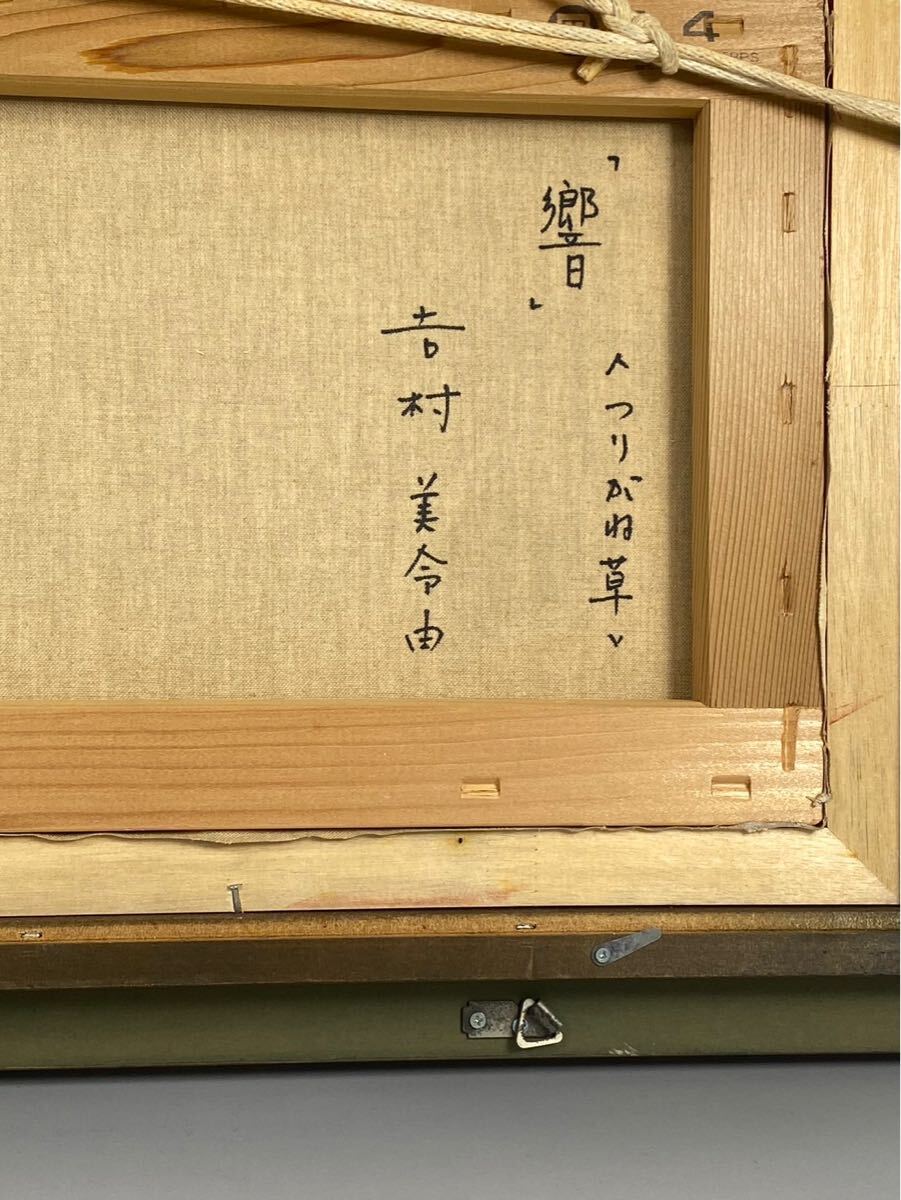 「響」
〈つりがね草〉
吉村 美令由
4